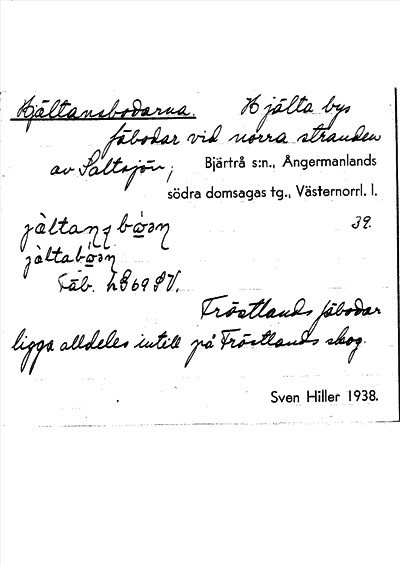 Hjältansbodarna. Hjälta bys
fäbodar vid norra stranden
av Saltsjön; Bjärtrå s:n., Ångermanlands
södra domsagas tg., Västernorrl. l.
39.
Fäb.
Fröstlands fäbodar
ligga alldeles intill på Fröstlands skog.
Sven Hiller 1938.